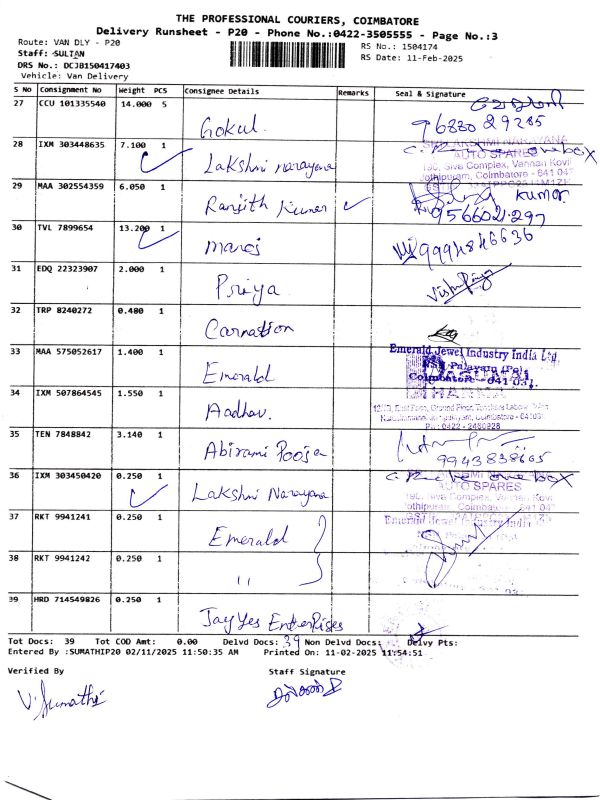 THE PROFESSIONAL COURIERS, COIMBATORE
Delivery Runsheet - P20 - Phone No.:0422-3505555 - Page No.:3
Route: VAN DLY - P20
RS No.: 1504174
Staff: SULTAN
RS Date: 11-Feb-2025
DRS No.: DCJB150417403
Vehicle: Van Delivery
S No Consignment No Weight PCS Consignee Details Remarks Seal & Signature
27 CCU 101335540 14.000 5 Gokul.
28 IXM 303448635 7.100 1 Lakshmi narayana
AUTO SPARES
190, Siva Complex, Vannan Kovil
Jothipuram, Coimbatore - 641 047
29 MAA 302554359 6.050 1 Ranjith Kumar
Kumar
9566021297
30 TVL 7899654 13.200 1 manoj 9994846636
31 EDQ 22323907 2.000 1 Priya
32 TRP 8240272 0.480 1 Carnation
33 MAA 575052617 1.400 1 Emerald
Emerald Jewel Industry India Ltd,
Coimbatore - 641 031.
34 IXM 507864545 1.550 1 Aadhav.
35 TEN 7848842 3.140 1 Abirami Pooja 9943838605
36 IXM 303450420 0.250 1 Lakshmi Narayana
AUTO SPARES
37 RKT 9941241 0.250 1 Emerald
Emerald Jewel Industry India
38 RKT 9941242 0.250 1 "
39 HRD 714549826 0.250 1 JayYes Enterprises
Tot Docs: 39 Tot COD Amt: 0.00 Delvd Docs: 39 Non Delvd Docs: Delvy Pts:
Entered By :SUMATHIP20 02/11/2025 11:50:35 AM Printed On: 11-02-2025 11:54:51
Verified By Staff Signature
V. Sumathi